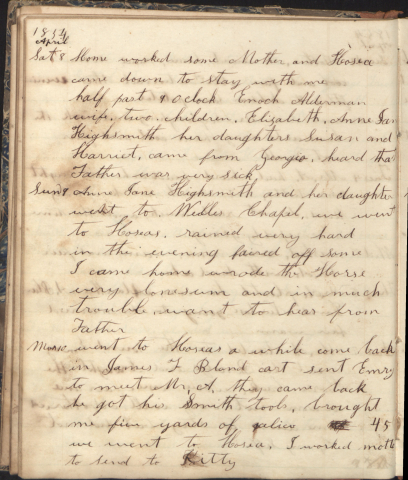 1854
April
Sat 8 Home worked some Mother and Hosea
came down to stay with me
half past 8 Oclock Enoch Alderman
wife, two children, Elizabeth, Anne Jan
Highsmith her daughters Susan and
Harriet, came from Georgia, heard tha
Father was very sick
Sun 9 Anne Jane Highsmith and her daughter
went to Wells Chapel, we went
to Hoseas. rained very hard
in the evening faired off some
I came home rode the Horse
very lonesum and in much
trouble want to hear from
Father
Mon 10 went to Hoseas a while come back
in James F Bland cart sent Emry
to meet Mr A, they came back
he got his Smith tools, brought
me five yards of calico 45
we went to Hosea, I worked
to send to Kitty